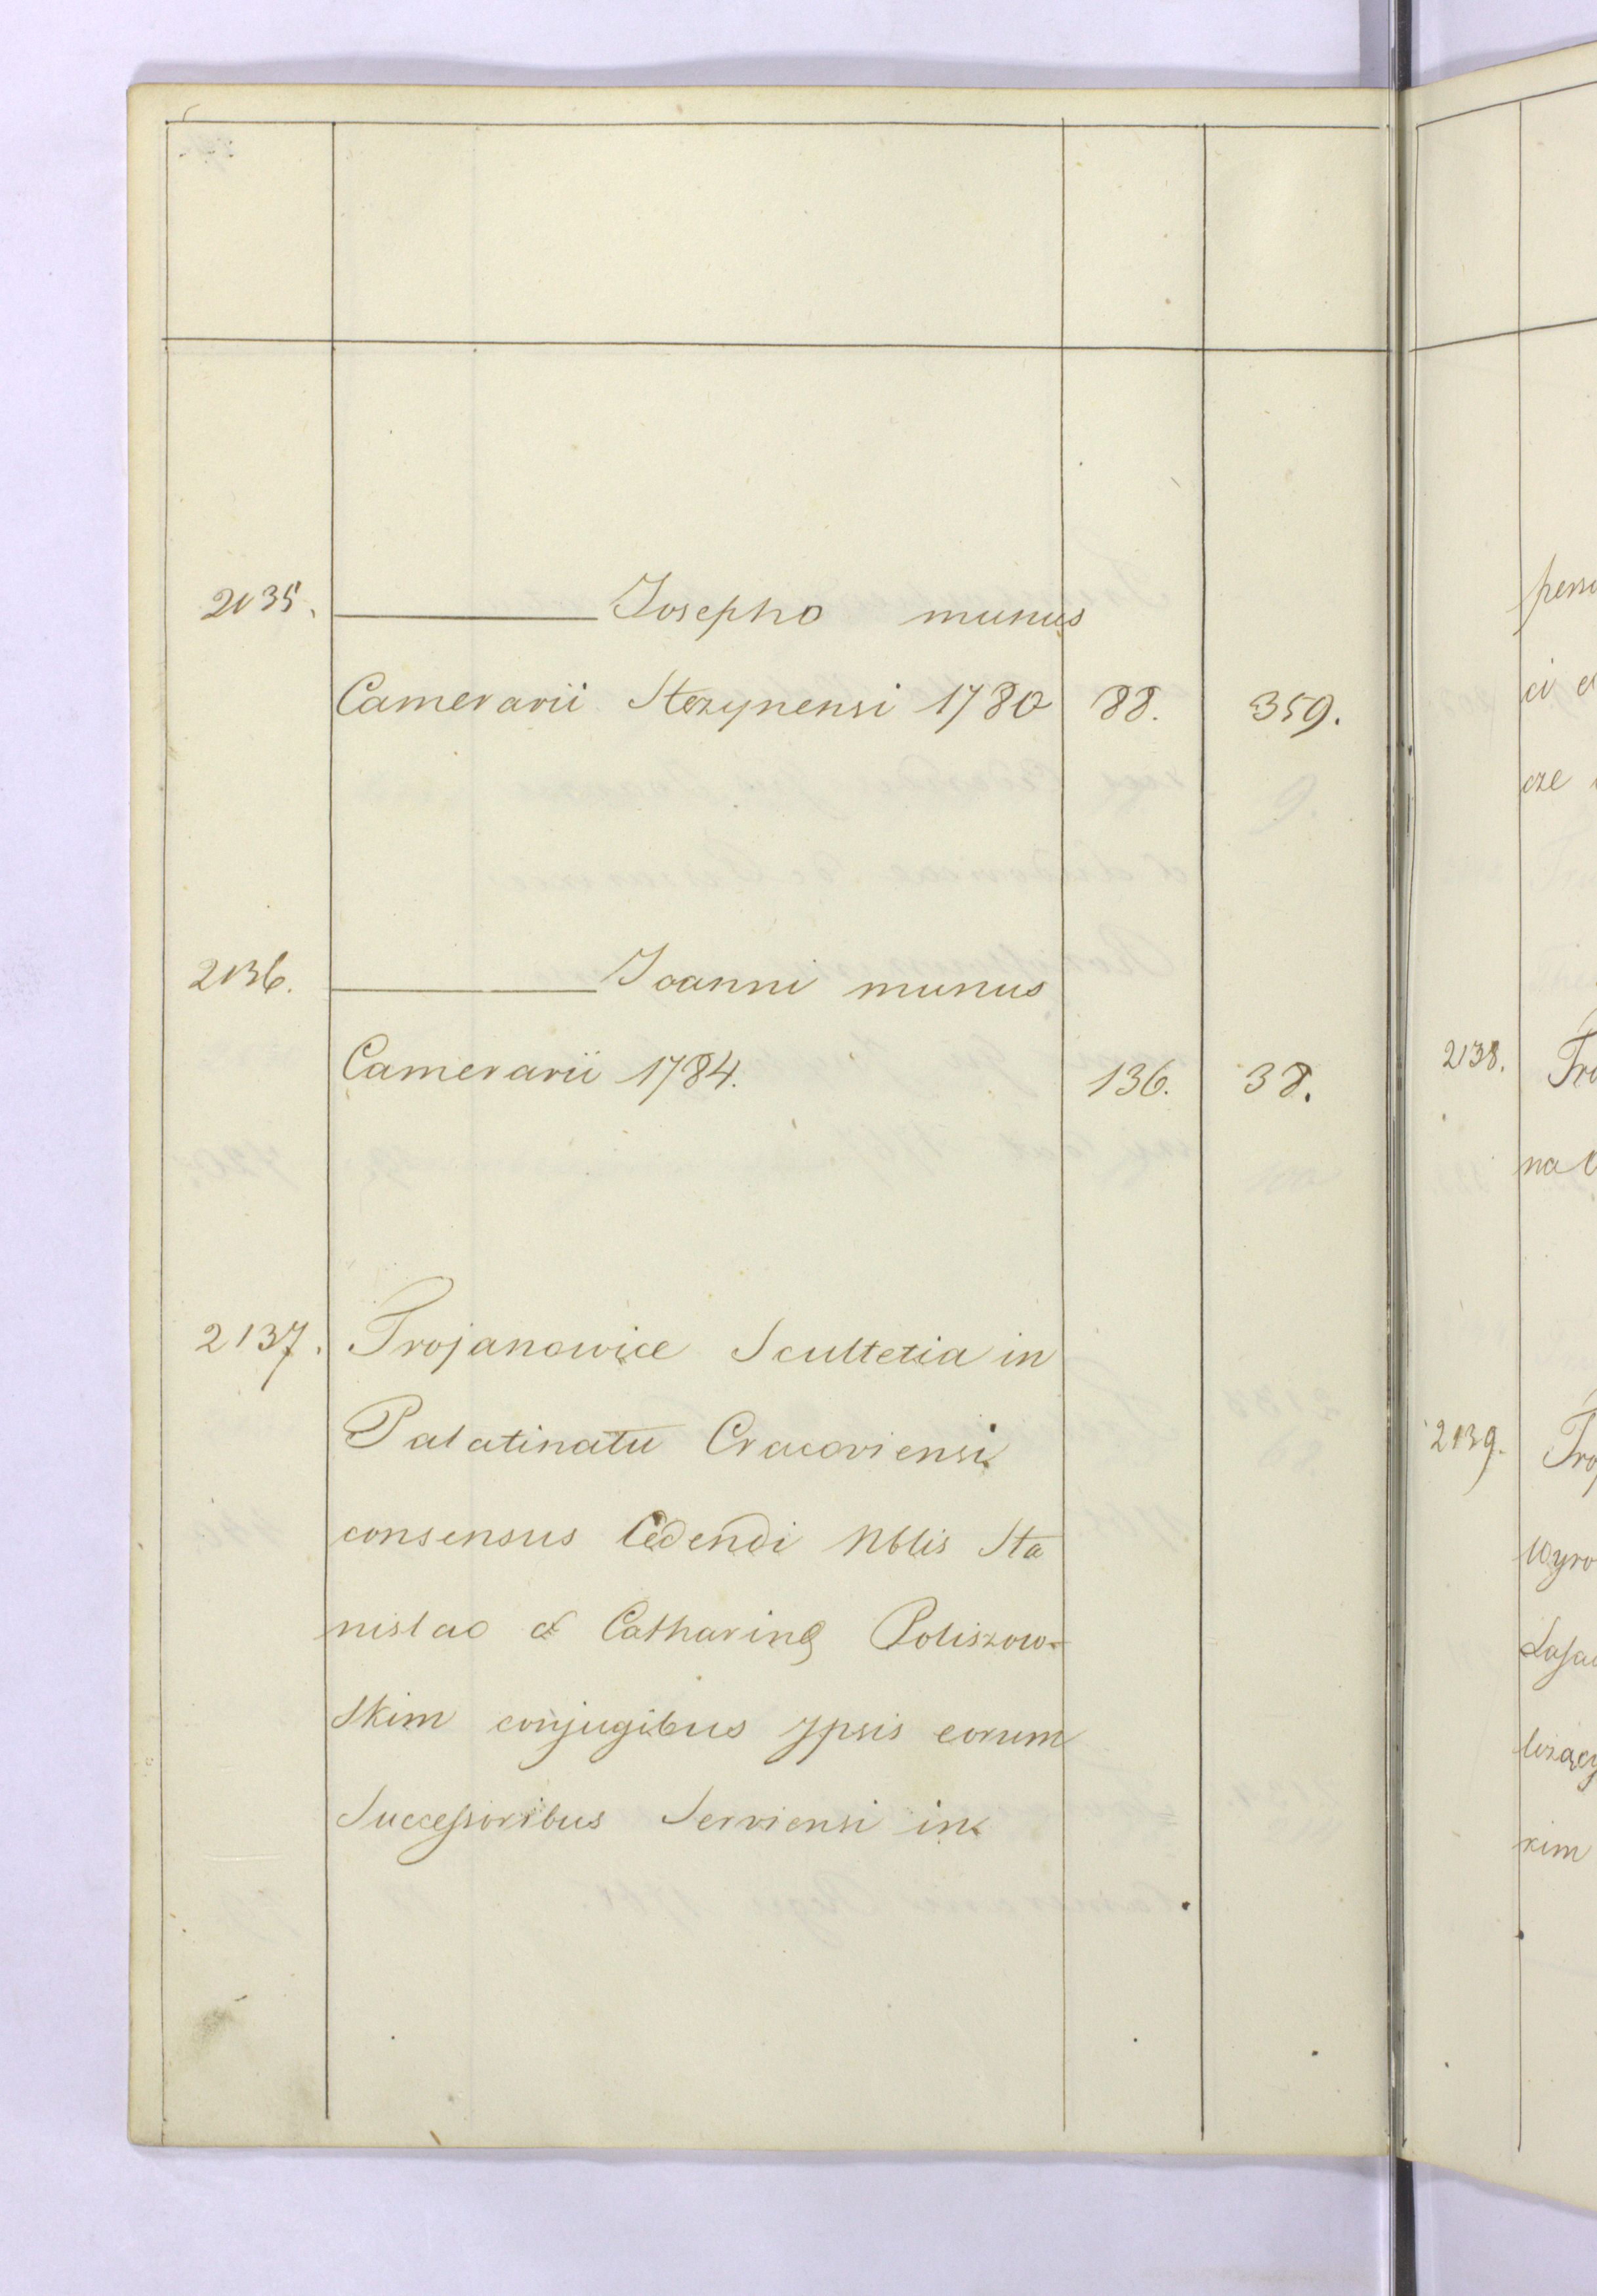 2135. ——— Josepho munus
Camerarii Stezynensi 1780 88. 359.
2136. ——— Joanni munus
Camerarii 1784. 136. 38.
2137. Trojanowice Scultetia in
Palatinatu Cracoviensi
consensus Cedendi Nblis Sta
nislao et Catharinę Poliszow-
skim conjugibus ypsis eorum
Successoribus Serviensi in
perso
ci
cze
2138. Tro
na
2139. Tro
Wyro
rim